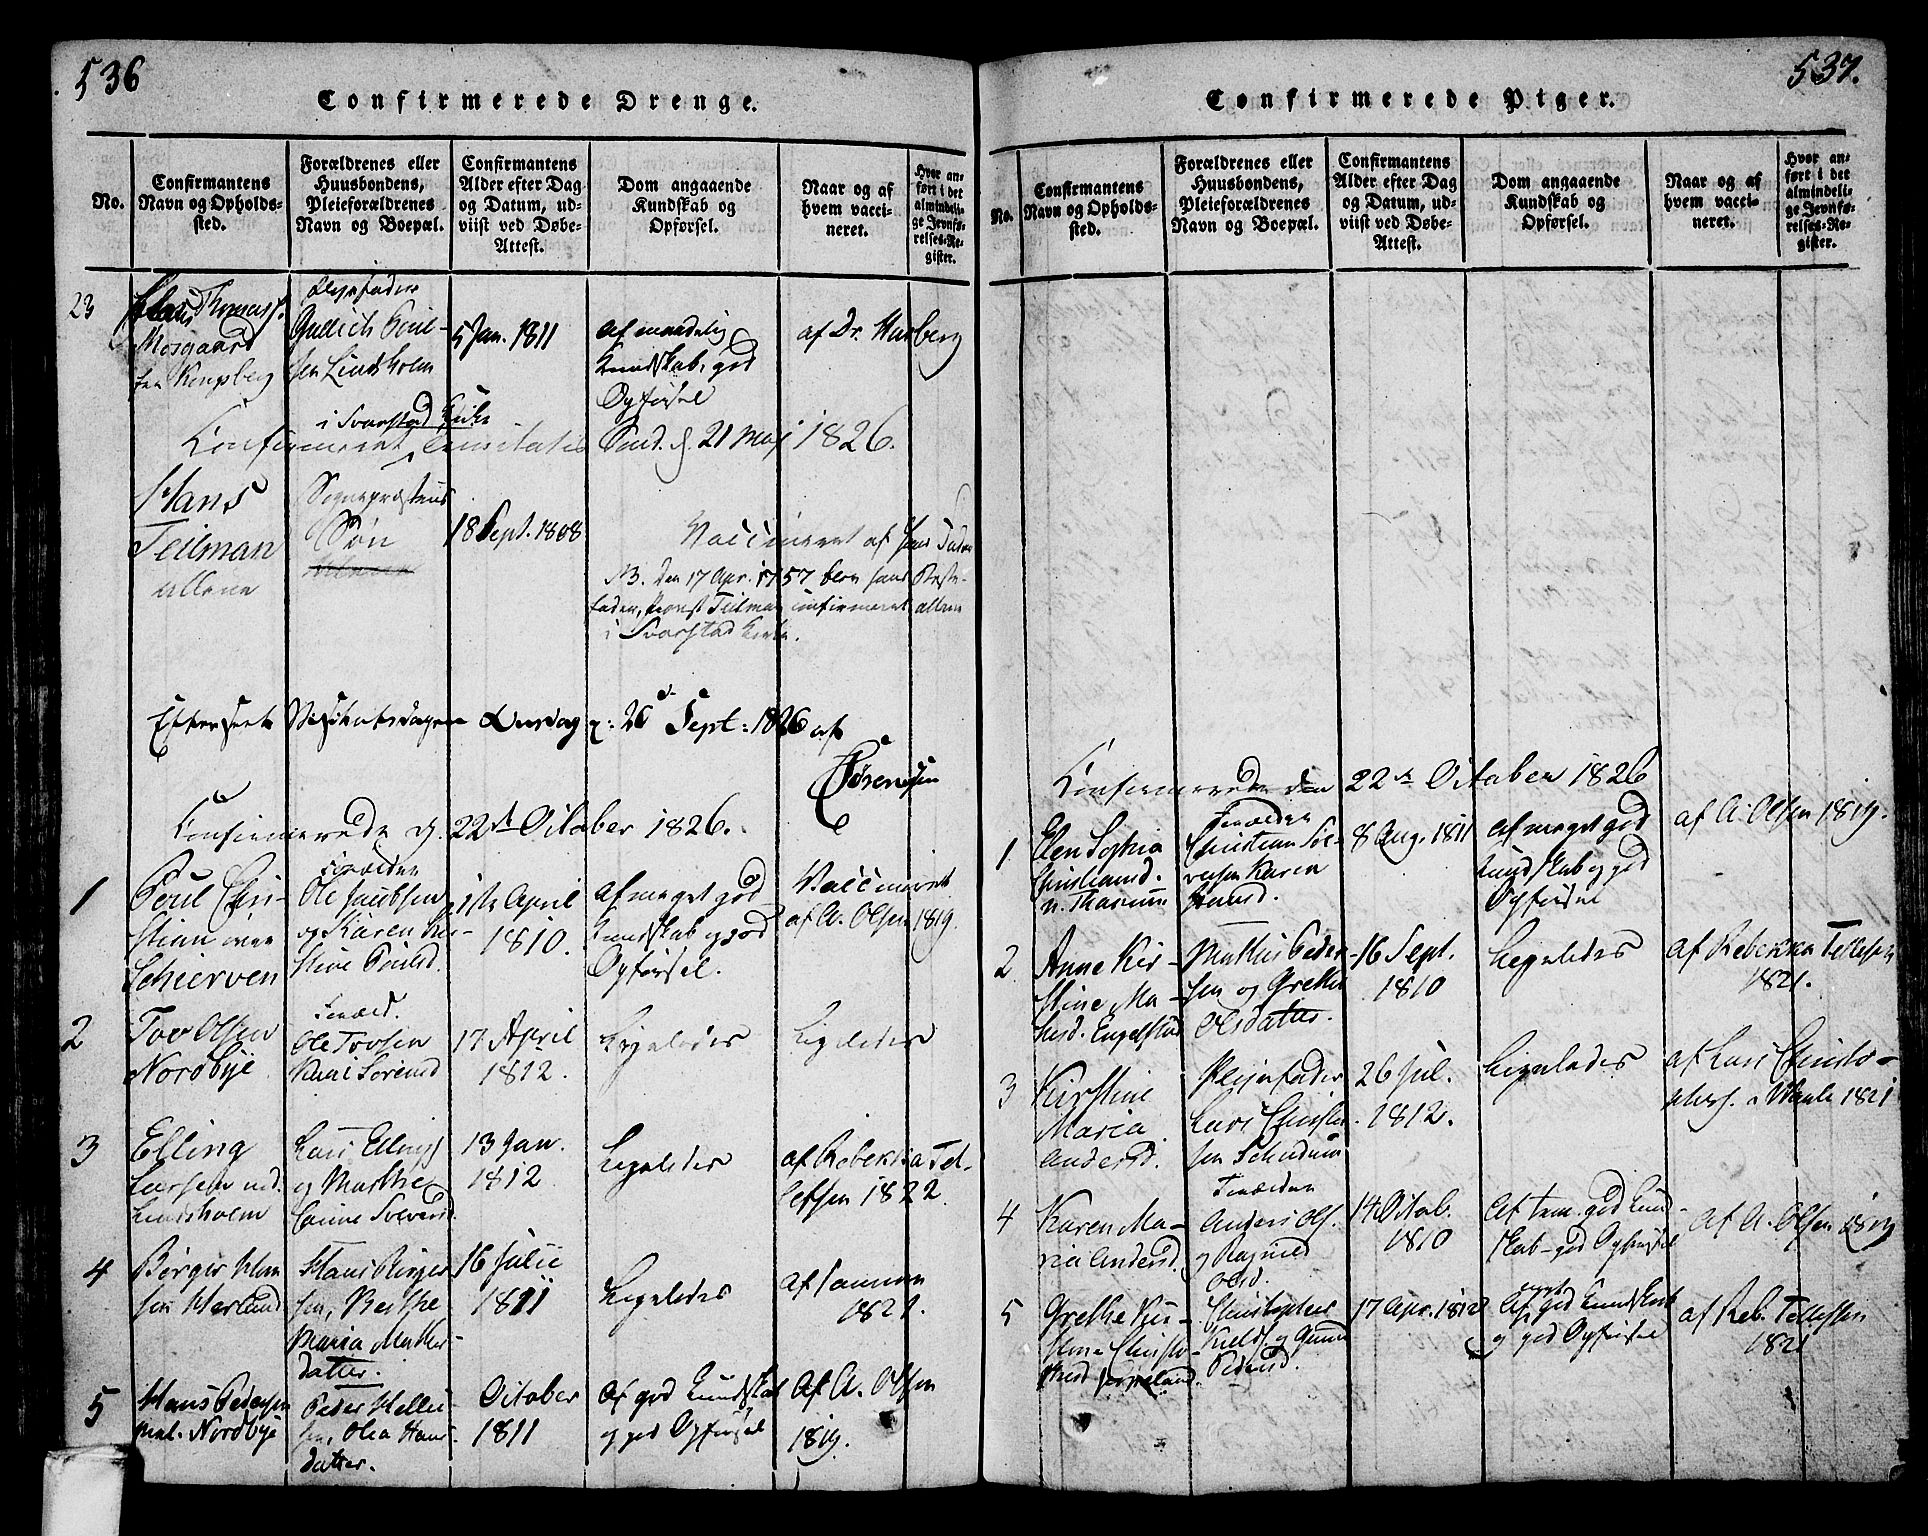 536
Confirmerede Drenge.
No.
Confirmantens
Navn og Opholds-
sted.
Forældrenes eller
Huusbondens,
Pleieforældrenes
Navn og Boepæl.
Confirmantens
Alder efter Dag
og Datum, ud-
viist ved Døbe-
Attest.
Dom angaaende
Kundskab og
Opførsel.
Naar og af
hvem vacci-
neret.
Hvor an-
ført i det
almindeli-
ge Jevnfø-
relses-Re-
gister.
23
Thomass.
Mosgaard
fra Kongsberg
Plejefader
Poul-
sen Lindholm
5 Jan. 1811
af maadelig
Kundskab, god
Opførsel
af Dr. Harberg
i Svarstad Kirke
Confirmeret Trinitatis Sønd. d. 21 Maj 1826.
Hans
Teilman
allene
Sognepræstens
Søn
18 Sept. 1808
Vaccineret af hans Fader
NB. den 17 Apr. 1757 blev hans Beste-
fader, Provst Teilman confirmeret allene
i Svarstad Kirke.
Efterseet Visitatsdagen Onsdag d: 20 Sept: 1826 af
Sørenssen
Confirmerede d. 22de October 1826.
1
Poul Chri-
stian øvre
Schierven
Forældre
Ole Jacobsen
og Karen Kir-
stine Poulsd.
1ste April
1810.
af meget god
Kundskab og god
Opførsel.
Vaccineret
af A. Olsen 1819.
2
Tov Olsen
Nordbye
Foræld.
Ole Tovsen
Kari Sørensd
17 April
1812.
Ligeledes
Ligeledes
3
Elling
Larsen ned.
Lindsholm
Lars Ellings.
og Marthe
Corine Solversd.
13 Jan.
1812
Ligeledes
af Rebekka Tel-
lefsen 1822.
4
Børger Han
sen Hærland
Hans Børger
sen, Berthe
Maria Mathis-
datter.
16 Julii
1811
Ligeledes
af
1821.
5
Hans Pedersen
mel. Nordbye
Peder Helli-
sen, Olea Hans-
datter.
October
1811
af god Kundskab
og god Opførsel
af A. Olsen
1819.
537.
Confirmerede Piger.
No.
Confirmantens
Navn og Opholds-
sted.
Forældrenes eller
Huusbondens,
Pleieforældrenes
Navn og Boepæl.
Confirmantens
Alder efter Dag
og Datum, ud-
viist ved Døbe-
Attest.
Dom angaaende
Kundskab og
Opførsel.
Naar og af
hvem vacci-
neret.
Hvor an-
ført i det
almindeli-
ge Jevnfø-
relses-Re-
gister.
Confirmerede den 22de October 1826
1
Elen Sophia
Christiansd.
n. Tharum
Forældre
Christian Sol-
versen Karen
Hansd.
8 Aug. 1811
af meget god
Kundskab og god
Opførsel
af A. Olsen 1819.
2
Anne Kir-
stine Ma-
thisd. Engelstad
Mathis Peder-
sen og Grethe
Olsdatter.
16 Sept.
1810
Ligeledes
af Rebekka Tellefsen
1821.
3
Kirstine
Maria
Andersd.
Plejefader
Lars Christen
sen Schinderum
26 Jul.
1812.
Ligeledes
af Lars Christo-
phers. 1821
4
Karen Ma-
ria Andersd.
Forældre
Anders Ols.
og Ragnild
Olsd.
14 Octob.
1810
af tem. god Kund-
skab - god Opførsel
af A. Olsen 1819
5
Grethe Kir-
stine Christo-
phersd
Christopher
Kields. og Gunild
Pedersd.
17 Apr. 1812
af meget god Kundskab
og god Opførsel
af Reb. Tellefsen
1821